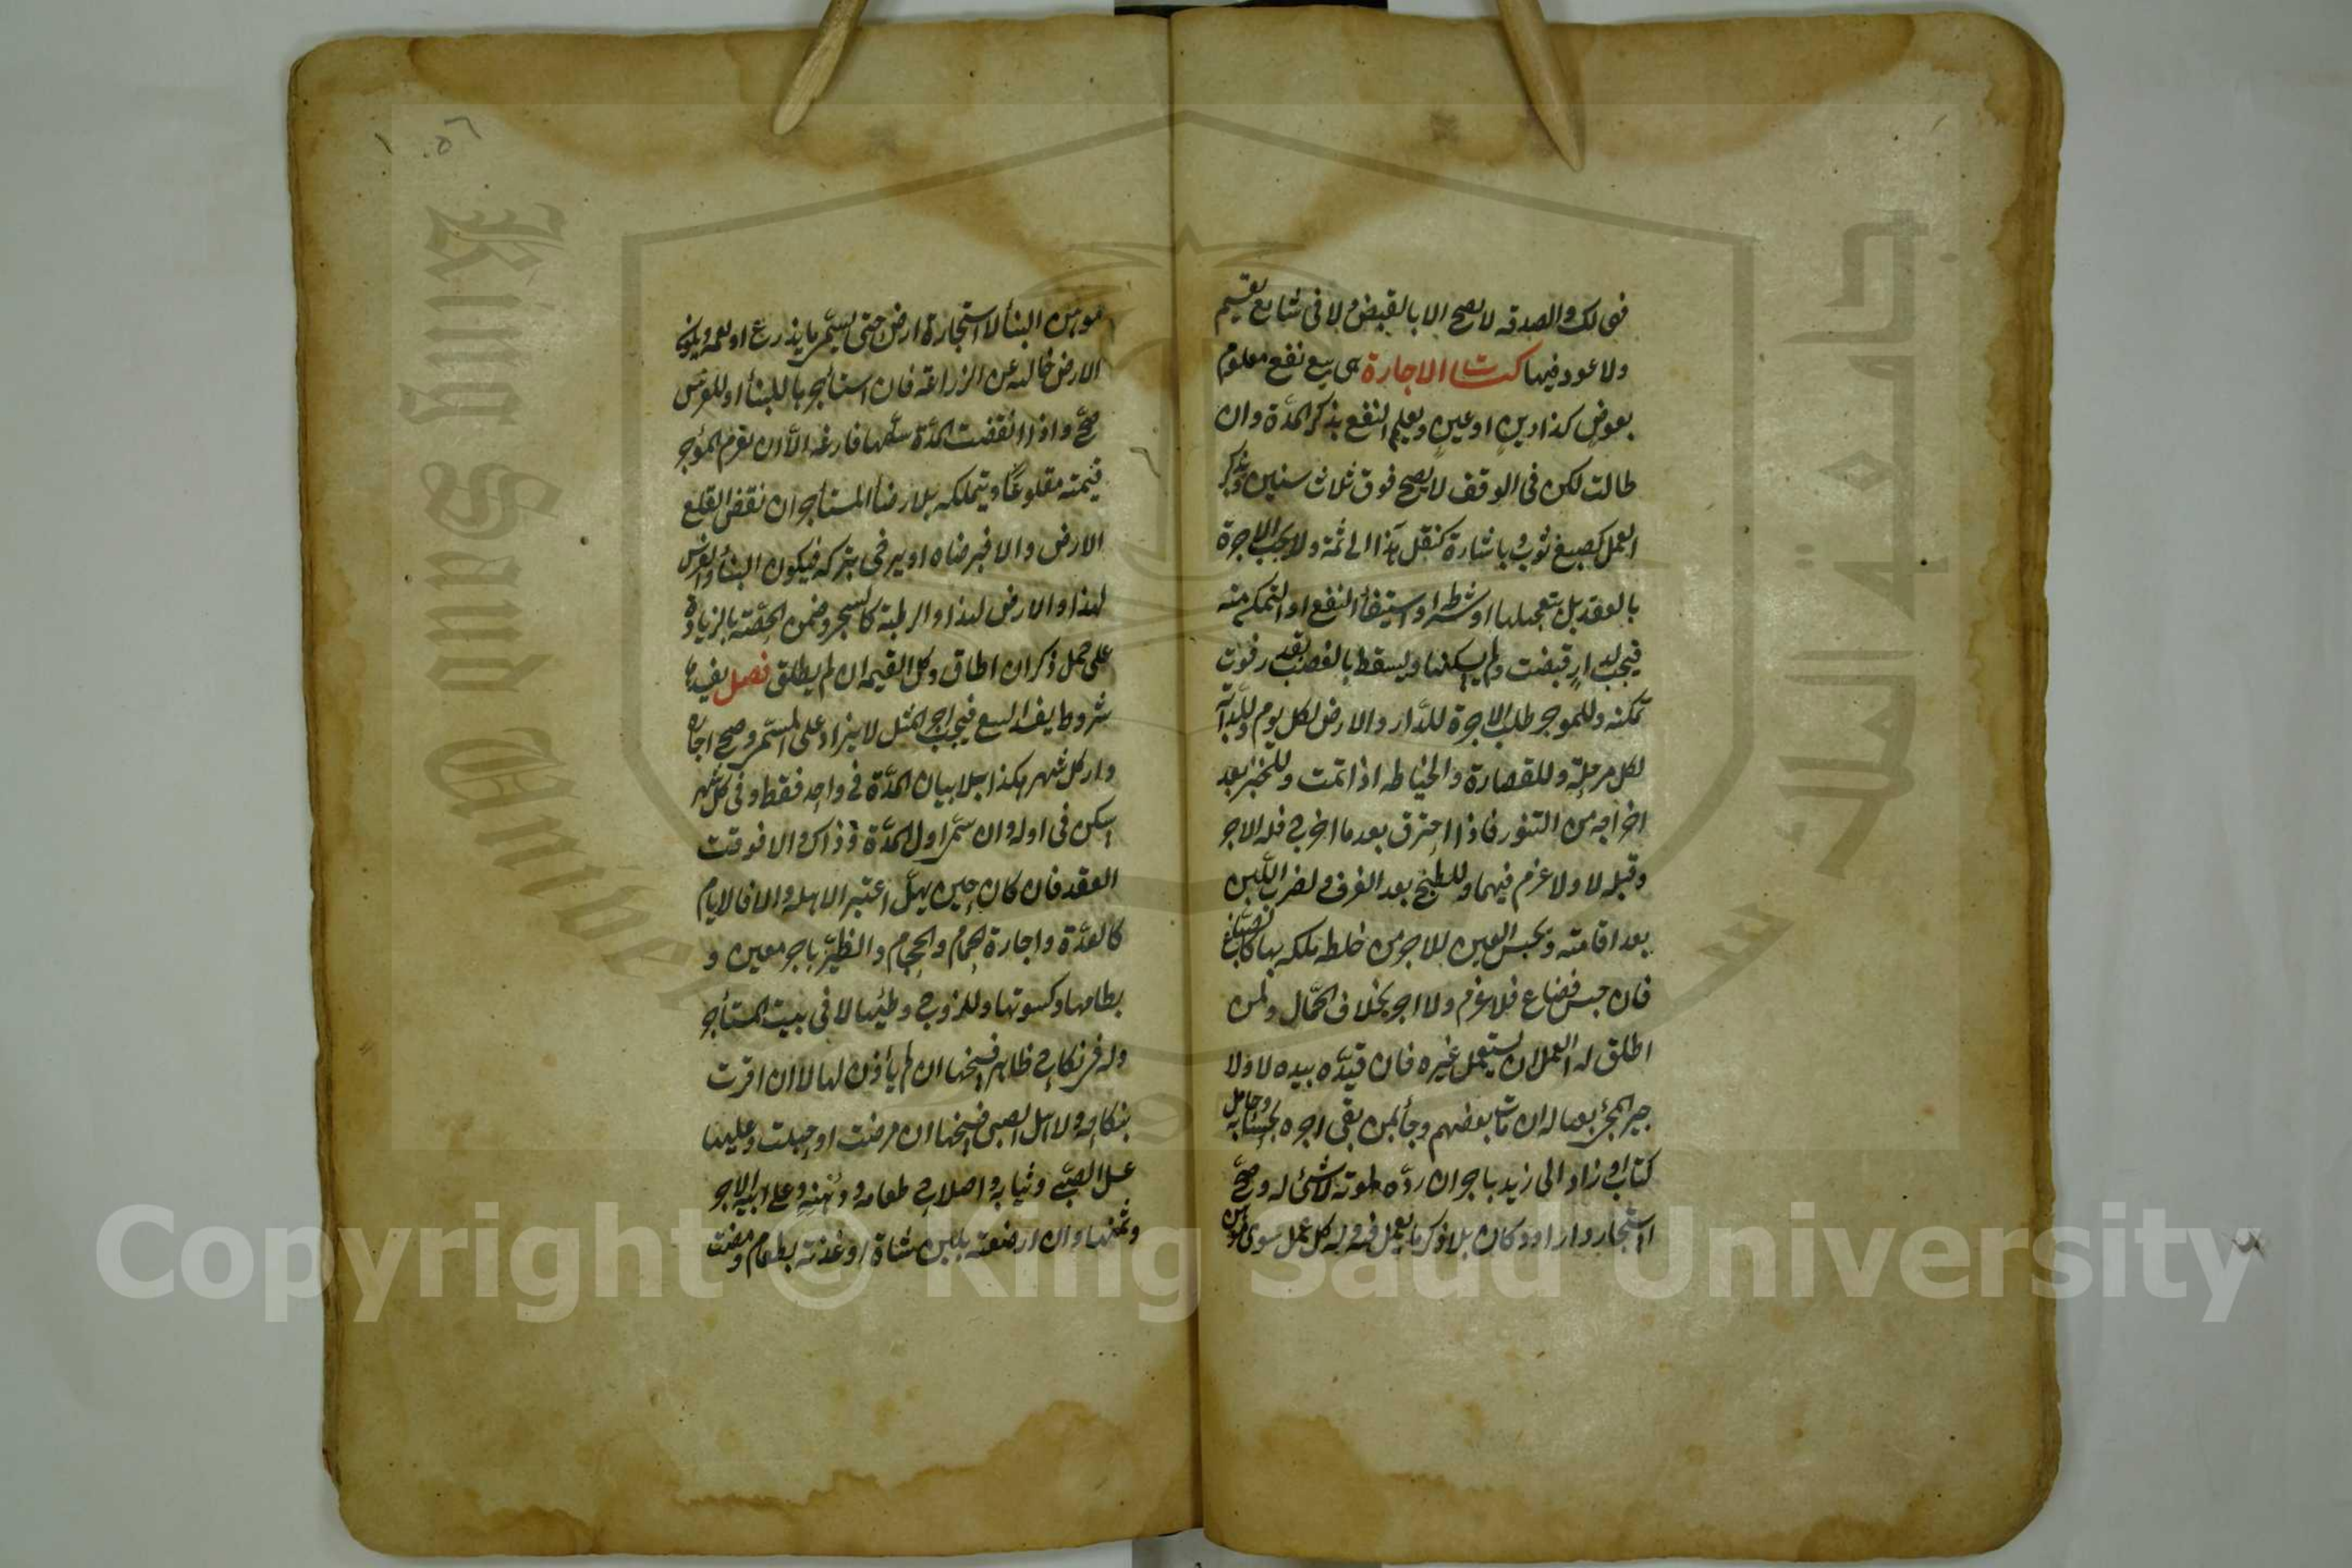 فهي لك والصدقة لا يصح الا بالقبض ولا في شايع يقسم
ولا عود فيها كتاب الاجارة هي بيع نفع معلوم
بعوض كذا دين او عين ويعلم النفع بذكر المدة وان
طالت لكن في الوقف لا يصح فوق ثلاث سنين وبذكر
العمل كصبغ ثوب وباشارة كنقل هذا الى ثمة ولا يجب الاجرة
بالعقد بل بتعجيلها او شرطه او استيفأ النفع او التمكن منه
فيجب لدار قبضت ولم يسكنها ويسقط بالغصب بقدر فوت
تمكنه وللموجر طلب الاجرة للدار والارض لكل يوم وللدابة
لكل مرحلة وللقصارة والخياطه اذا تمت وللخبز بعد
اخراجه من التنور فاذا احترق بعد ما اخرج فله الاجر
وقبله لا ولا غرم فيهما وللطبخ بعد الغرف ولضرب اللبن
بعد اقامته ويحبس العين للاجر من خلط ملكه بها كالصباغ
فان حبس فضاع فلا غرم ولا اجر بخلاف الحمال ولمن
اطلق له العمل ان يستعمل غيره فان قيده بيده لا ولا
جير المجئ بعياله ان مات بعضهم وجأ بمن بقى اجره بحسابه وحامل
كتاب او زاد الى زيد باجر ان رده لموته لا شئ له وصح
استيجار دار او دكان بلا ذكر ما يعمل فيه وله كل عمل سوى
موهن البنأ لا استجارة ارض حتى يسمى ما يزرع او يعمه ويكون
الارض خالية عن الزراعة فان استأجرها للبنأ او للغرس
صح واذا انقضت المدة سلمها فارغة الا ان يغرم الموجر
قيمته مقلوعا ويتملكه بلا رضأ المستأجر ان نقض القلع
الارض والا فبرضاه او يرضى بتركه فيكون البنأ والغرس
لهذا والارض لهذا والرطبة كالشجر وضمن الحصة بالزيادة
على حمل ذكر ان اطاق وكل القيمة ان لم يطلق فصل يفسدها
شروط يفسد البيع فيجب اجر المثل لا يزاد على المسمى وصح اجارة
دار كل شهر بكذا بلا بيان المدة في واحد فقط وفي كل شهر
سكن في اوله وان سمى اول المدة فذاك والا فوقت
العقد فان كان حين يهل اعتبر الاهلة والا فالايام
كالعدة واجارة الحمام والحجام والظئر باجر معين و
بطعامها وكسوتها وللزوج وطئها لا في بيت المستأجر
وله في نكاح ظاهر فسخها ان لم يأذن لها لا ان اقرت
بنكاحه ولاهل الصبي فسخها ان مرضت او حبلت وعليها
غسل الصبي وثيابه واصلاح طعامه ودهنه وعلى ابيه الاجر
وثمنها وان ارضعته بلبن شاة او غذته بطعام ومضت
Copyright © King Saud University